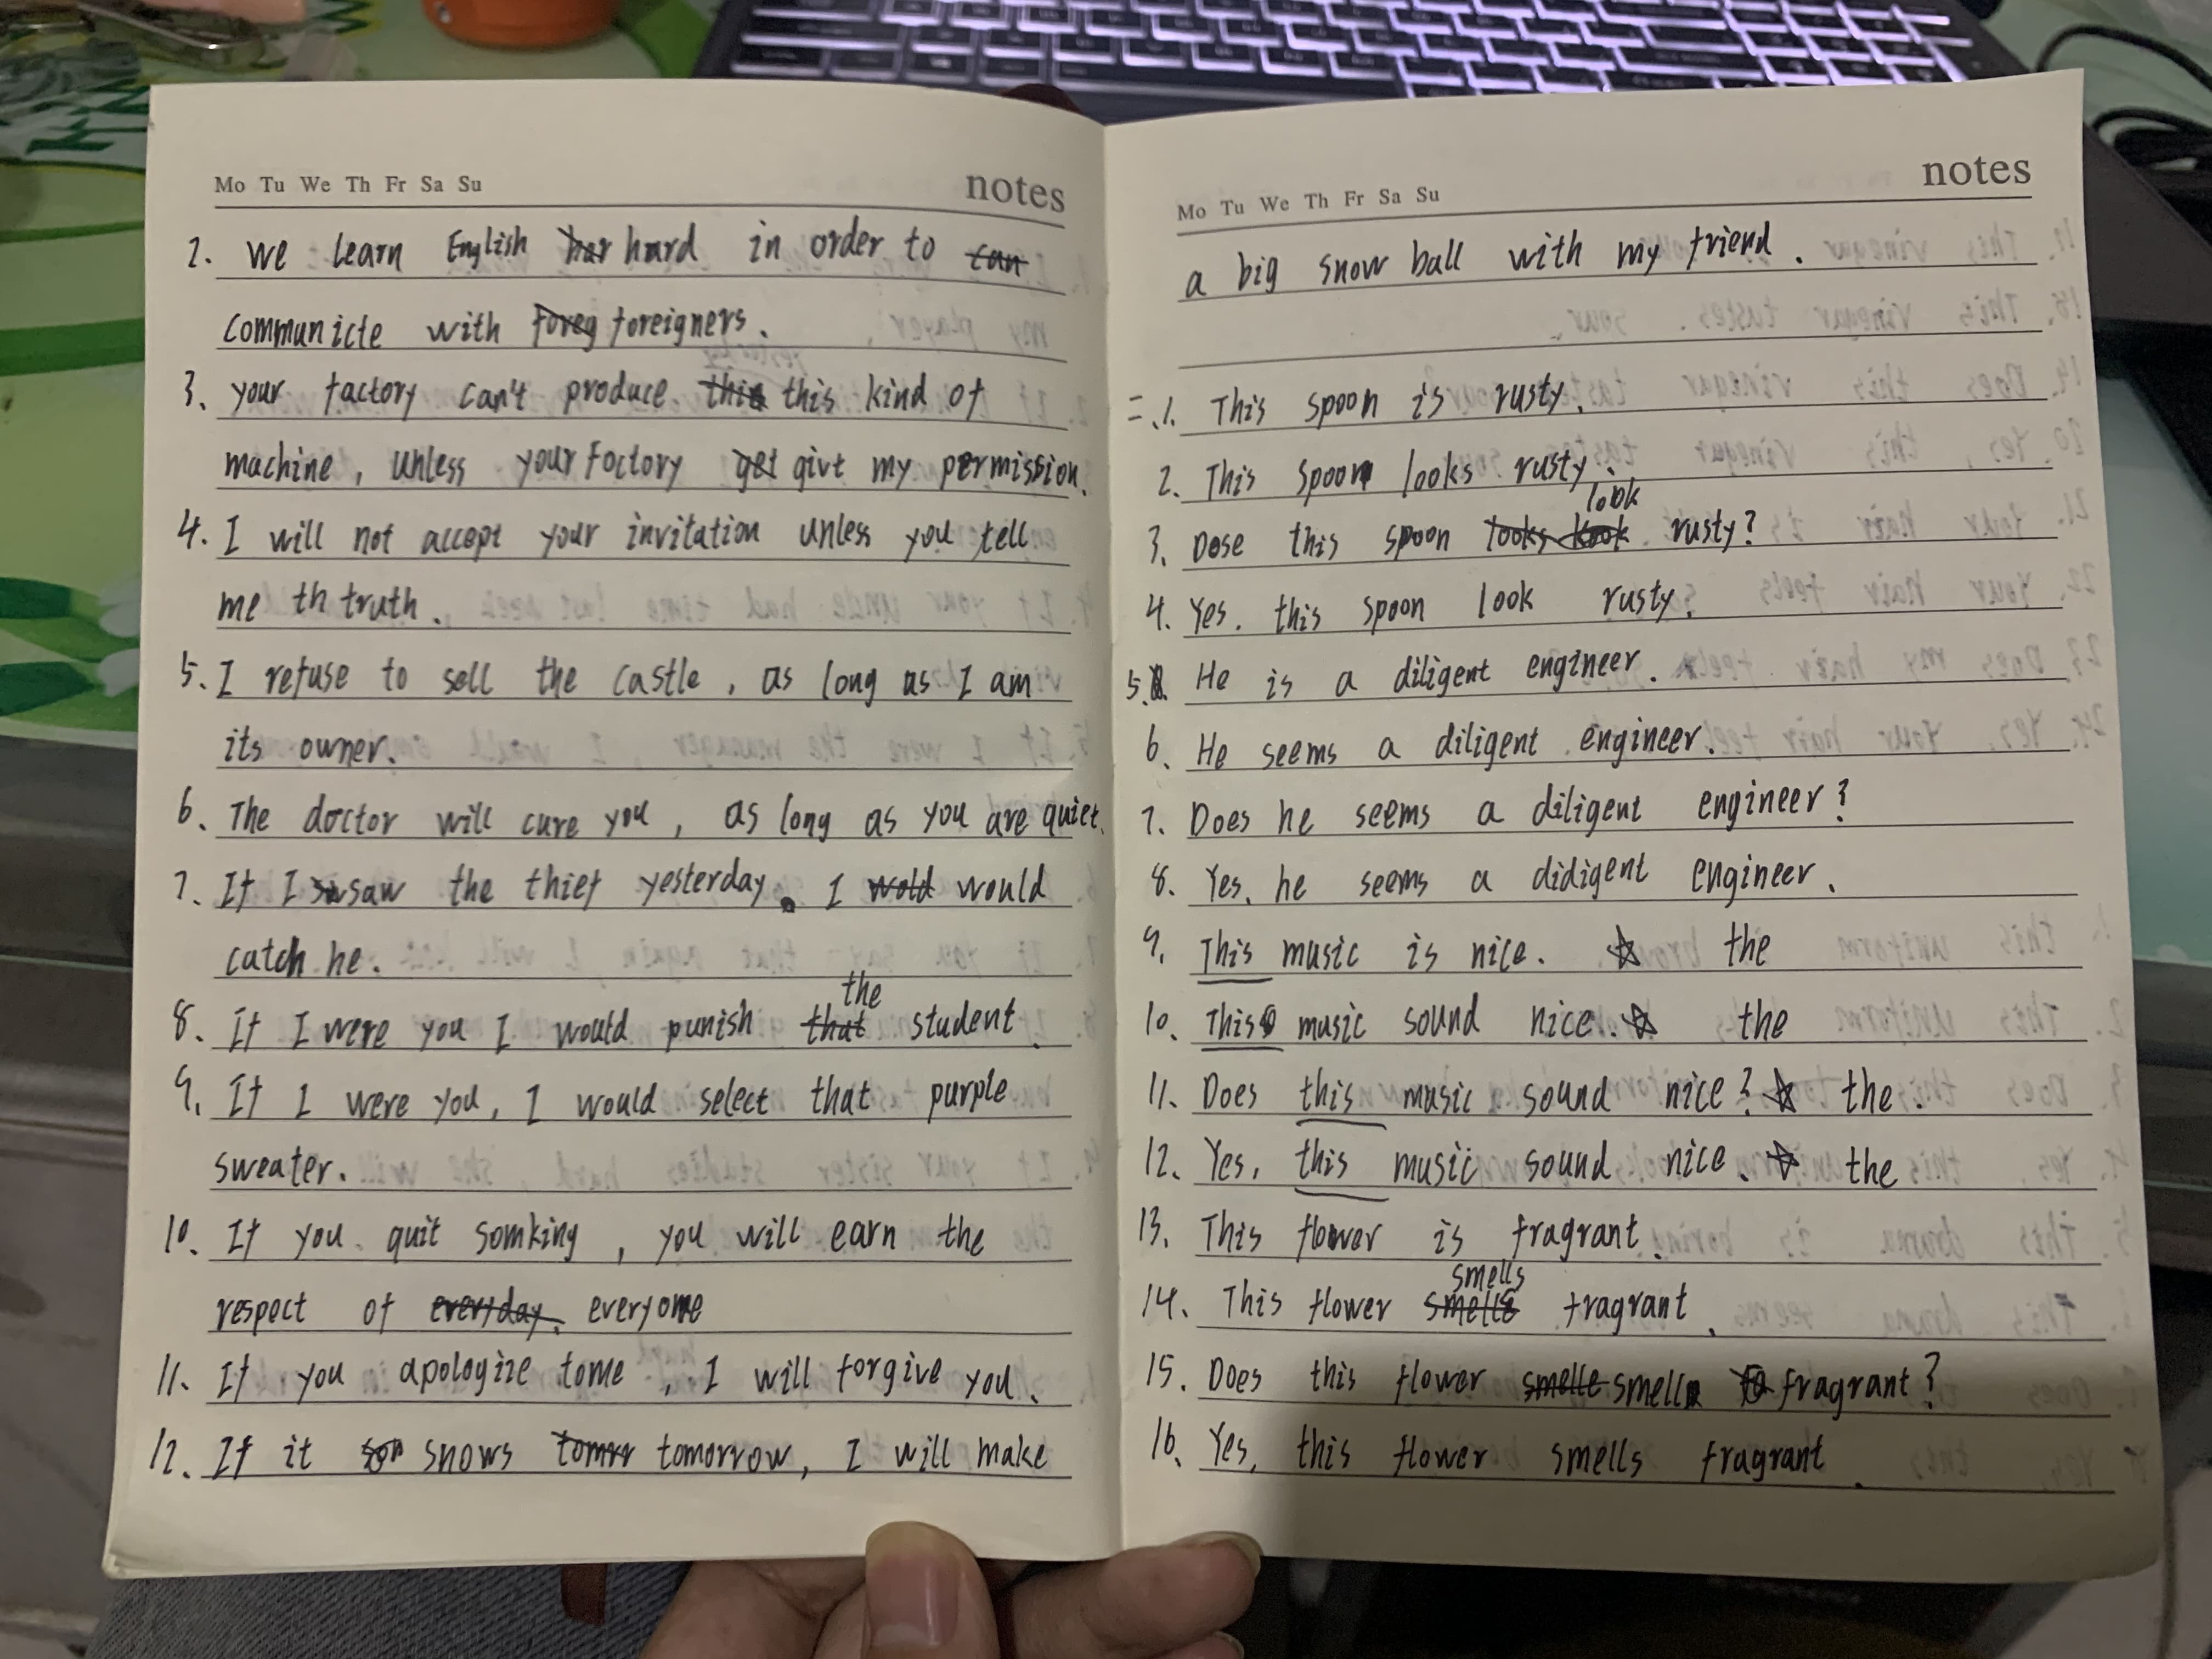 Mo Tu We Th Fr Sa Su notes
2. we learn English har hard in order to can
communicte with foreg foreigners.
3. your factory can't produce this this kind of
machine, unless your foctory get givt my permission.
4. I will not accept your invitation unless you tell
me th truth.
5. I refuse to sell the castle, as long as I am
its owner.
6. The doctor will cure you, as long as you are quiet.
7. If I saw the thief yesterday. I wold would
catch he.
the
8. If I were you I would punish that student.
9. If I were you, I would select that purple
sweater.
10. If you quit somking, you will earn the
respect of everyday. everyone
11. If you apologize tome, I will forgive you.
12. If it snows tomorrow, I will make
Mo Tu We Th Fr Sa Su notes
a big snow ball with my friend.
二.1. This spoon is rusty.
2. This spoon looks rusty.
look
3. Dose this spoon looks look rusty?
4. Yes. this spoon look rusty.
5. He is a diligent engineer.
6. He seems a diligent engineer.
7. Does he seems a diligent engineer?
8. Yes, he seems a didigent engineer.
9. This music is nice. ☆ the
10. This music sound nice. ☆ the
11. Does this music sound nice? ☆ the.
12. Yes, this music sound nice. ☆ the
13. This flower is fragrant.
smells
14. This flower smells fragrant.
15. Does this flower smelle smell fragrant?
16. Yes, this flower smells fragrant.